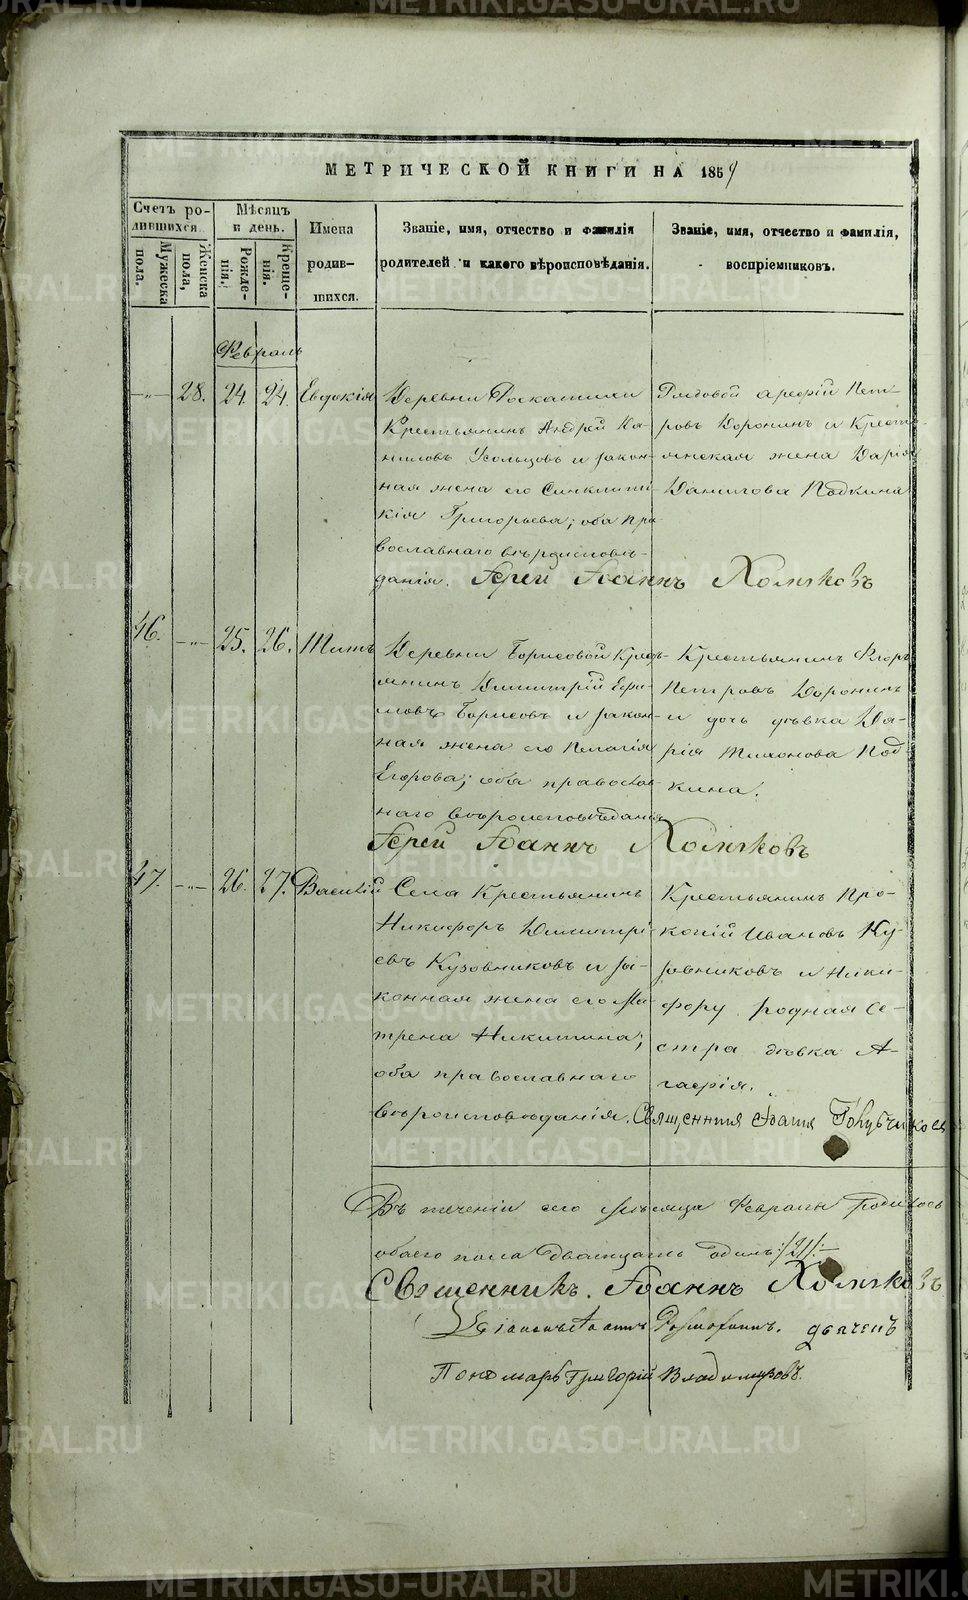 МЕТРИЧЕСКОЙ КНИГИ НА 1859
Счетъ ро-
дившихся.
Мужеска
пола.
Женска
пола,
Мѣсяцъ
и день.
Рожде-
нія.
Креще-
нія.
Имена
родив-
шихся.
Званіе, имя, отчество и фамилія
родителей и какого вѣроисповѣданія.
Званіе, имя, отчество и фамилія,
воспріемниковъ.
Февраль
28. 24. 24. Евдокія
Деревни
Крестьянинъ Андрей Да-
ниловъ Усольцовъ и закон-
ная жена его Синклити-
кія Григорьева; оба пра-
вославнаго вѣроисповѣ-
данія.
Рядовой Пет-
ровъ Доронинъ и Кресть-
янская жена Дарія
Данилова Подкина
Іерей Іоаннъ Холмяковъ
46. 25. 26. Титъ
Деревни Борисовой Кресть-
янинъ Димитрій Ефи-
мовъ Борисовъ и закон-
ная жена его Пелагія
Егорова; оба православ-
наго вѣроисповѣданія
Крестьянинъ Егоръ
Петровъ Доронинъ
и дочь дѣвка Да-
рія Тихонова Под-
кина.
Іерей Іоаннъ Холмяковъ
47. 26. 27. Василій
Села Крестьянинъ
Никифоръ Димитрі-
евъ Кузовниковъ и за-
конная жена его Ма-
трена Никитина;
оба православнаго
вѣроисповѣданія.
Крестьянинъ Про-
копій Ивановъ Ку-
зовниковъ и Ники-
фору родная се-
стра дѣвка А-
гафія.
Священникъ Іоаннъ Голубчиковъ
Въ теченіи сего мѣсяца Февраля Родилось
обаего пола двадцать одинъ:/21/:-
Священникъ. Іоаннъ Холмяковъ
дьячекъ
Пономарь Григорій Владимировъ.
METRIKI.GASO-URAL.RU